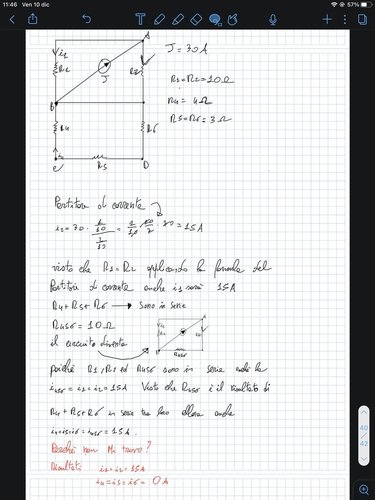 11:46 Ven 10 dic 57%
A
i1
R2
J
J = 30A
R1 = R2 = 10Ω
R4 = 4Ω
R5 = R6 = 3Ω
B
R4
R6
R5
C
D
Partitore di corrente
i2 = 30 · = 15A
visto che R1 = R2 applicando la formula del
Partitore di corrente anche i1 sarà 15A
R4 + R5 + R6 → Sono in serie
R456 = 10Ω
il circuito diventa
A
B
R456
poiché R1, R2 ed R456 sono in serie
i456 = i1 = i2 = 15A Visto che R456 è il risultato di
R4 + R5 + R6 in serie tra loro allora anche
i4 = i5 = i6 = i456 = 15A.
Perché non Mi trovo?
Risultati i1 = i2 = 15A
i4 = i5 = i6 = 0A
40
42